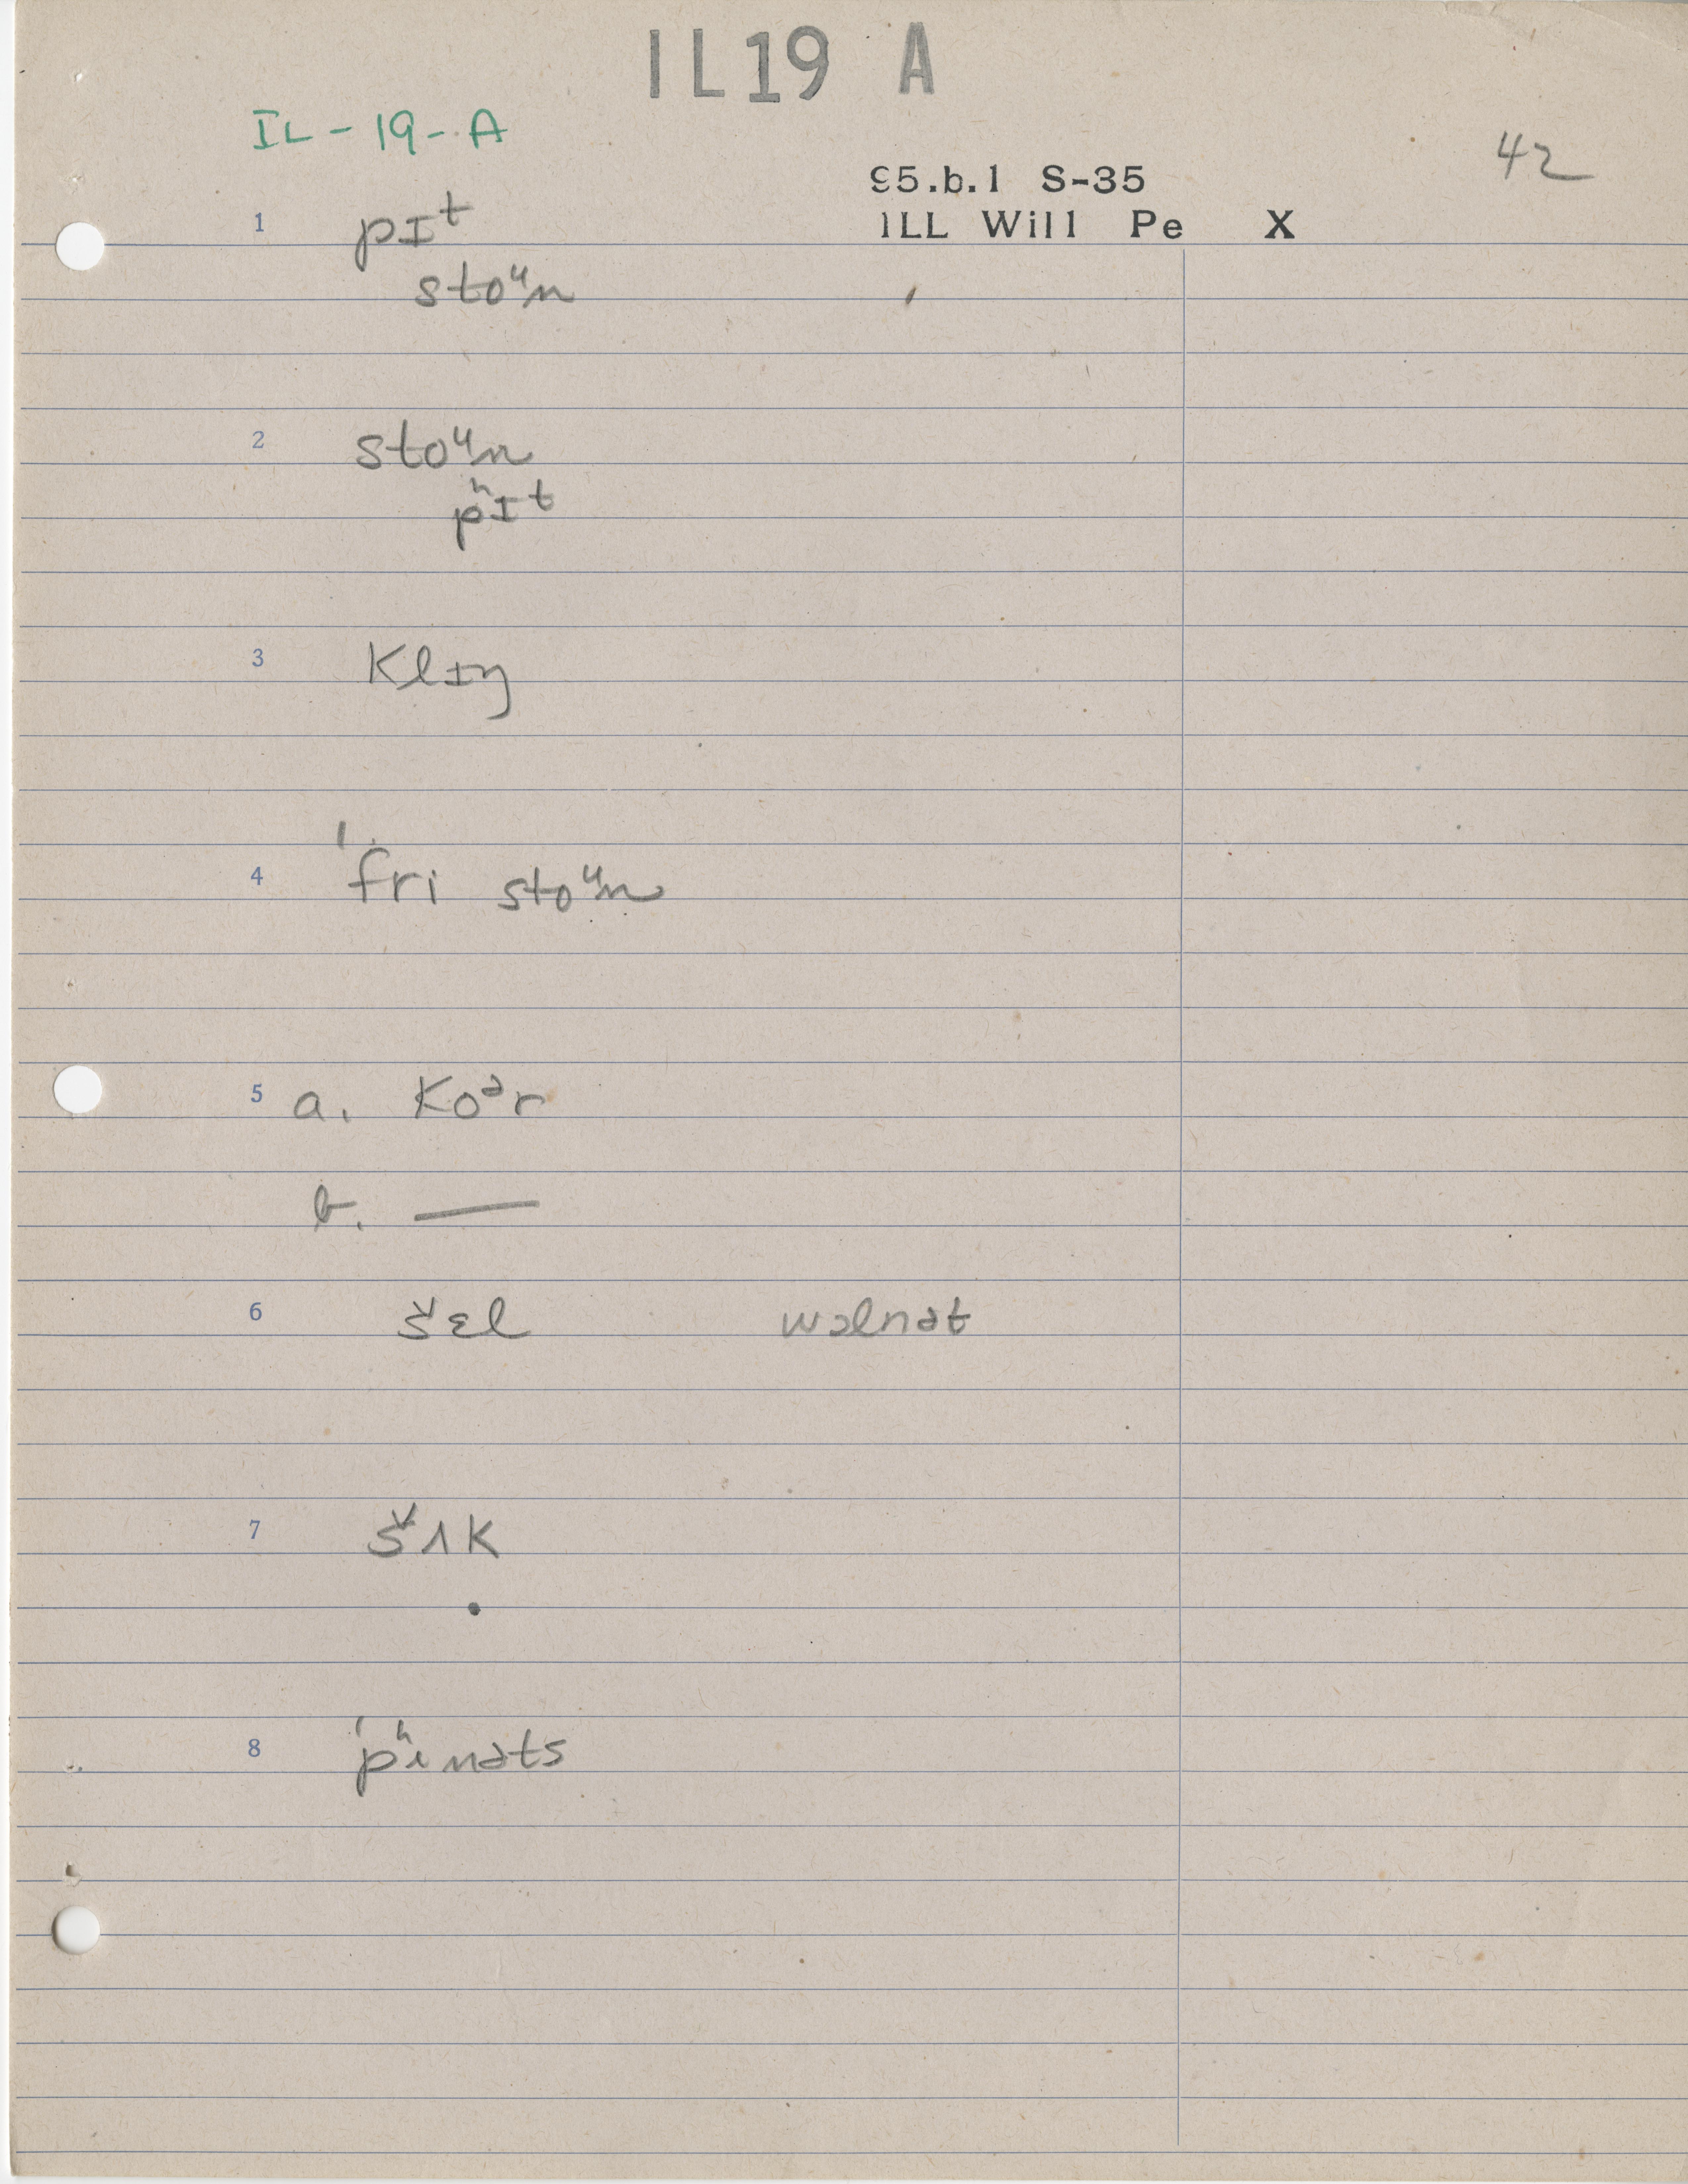 IL19 A
IL-19-A
42
95.b.1 S-35
ILL Will Pe X
1 pɪt
stoᵘn
2 stoᵘn
pʰɪt
3 klɪŋ
4 ˈfri stoᵘn
5 a. koᵊr
b. —
6 šɛl wɔlnət
7 šʌk
8 ˈpʰinəts